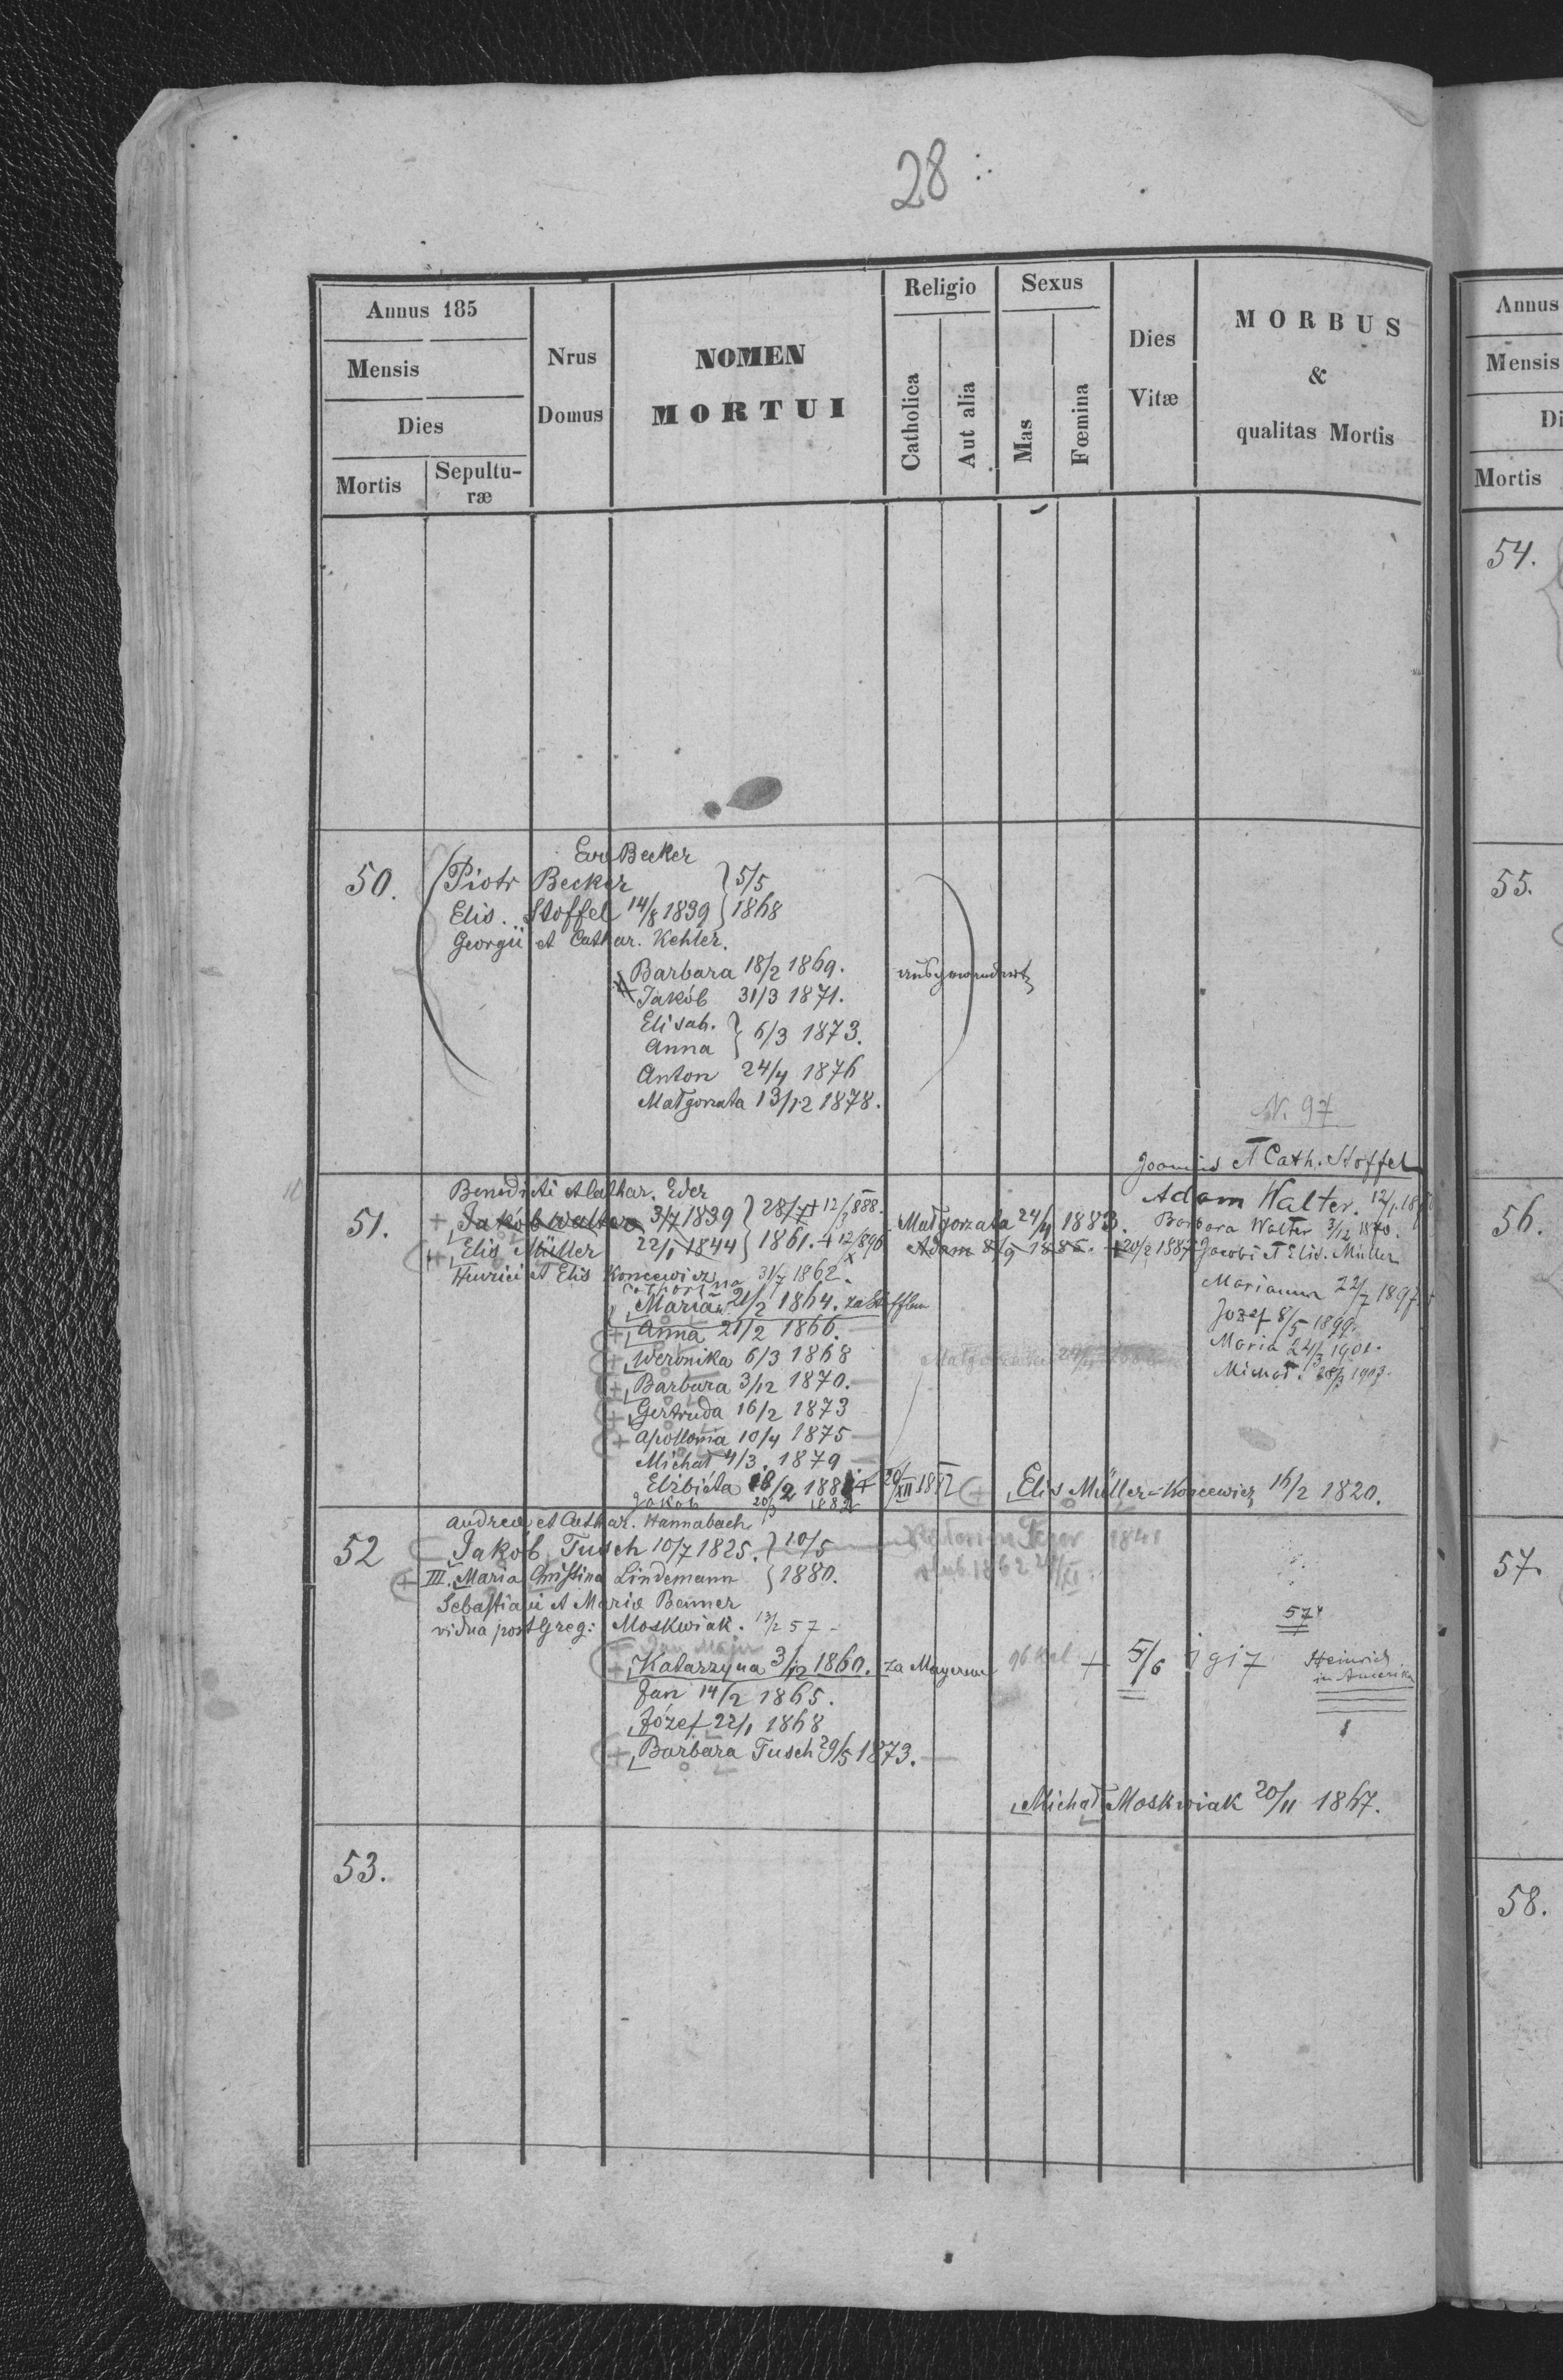 28
Annus 185
Mensis
Dies
Mortis
Sepultu-
ræ
Nrus
Domus
NOMEN
MORTUI
Religio
Catholica
Aut alia
Sexus
Mas
Fœmina
Dies
Vitæ
MORBUS
&
qualitas Mortis
50.
Becker
Piotr Becker } 5/5
Elis. Stoffel 14/8 1839 } 1868
Georgii et Cathar. Kehler.
Barbara 18/2 1869.
Jakób 31/3 1871.
Elisab. }
Anna } 6/3 1873.
Anton 24/4 1876
Małgorzata 13/12 1878.
ausgewandert
N. 97
Joannis et Cath. Stoffel
Adam Walter. 12/1 18
Barbara Walter 3/12 1870.
Jacobi et Elis. Müller
Marianna 22/7 1897
Jozef 8/5 1899.
Maria 24/3 1901.
Michał.
51.
Benedicti et Cathar. Eder
+ Jakób Walter 3/7 1839 } 28/7 + 12/3 888.
+ Elis Müller 22/1 1844 } 1861. + 12/X 896
Henrici et Elis Koncewicz
31/7 1862.
Maria 21/2 1864. za Stofflem
+ Anna 21/2 1866.
+ Weronika 6/3 1868
+ Barbara 3/12 1870.
+ Gertruda 16/2 1873
+ Apollonia 10/4 1875
Michał 4/3. 1879
Elżbieta 18/2 1881 + 20/XII 1882
Jakob 20/3 1882
Małgorzata 24/4 1883.
Adam 8/9 1885. + 20/2 1887
Elis Müller-Koncewicz 16/2 1820.
52
Andreæ et Cathar. Hannabach
Jakob Tusch 10/7 1825. } 10/5
+ III. Maria Christina Lindemann } 1880.
Sebastiani et Mariæ Benner
vidua post Greg: Moskwiak. 13/2 57
Jan Majer
+ Katarzyna 3/12 1860. za Mayerem
Jan 14/2 1865.
Józef 22/1 1868
+ Barbara Tusch 29/5 1873.
1841
1862
+ 5/6 1917
57
Heinrich
in Amerika
Michał Moskwiak 20/11 1867.
53.
Annus
Mensis
Di
Mortis
54.
55.
56.
57.
58.